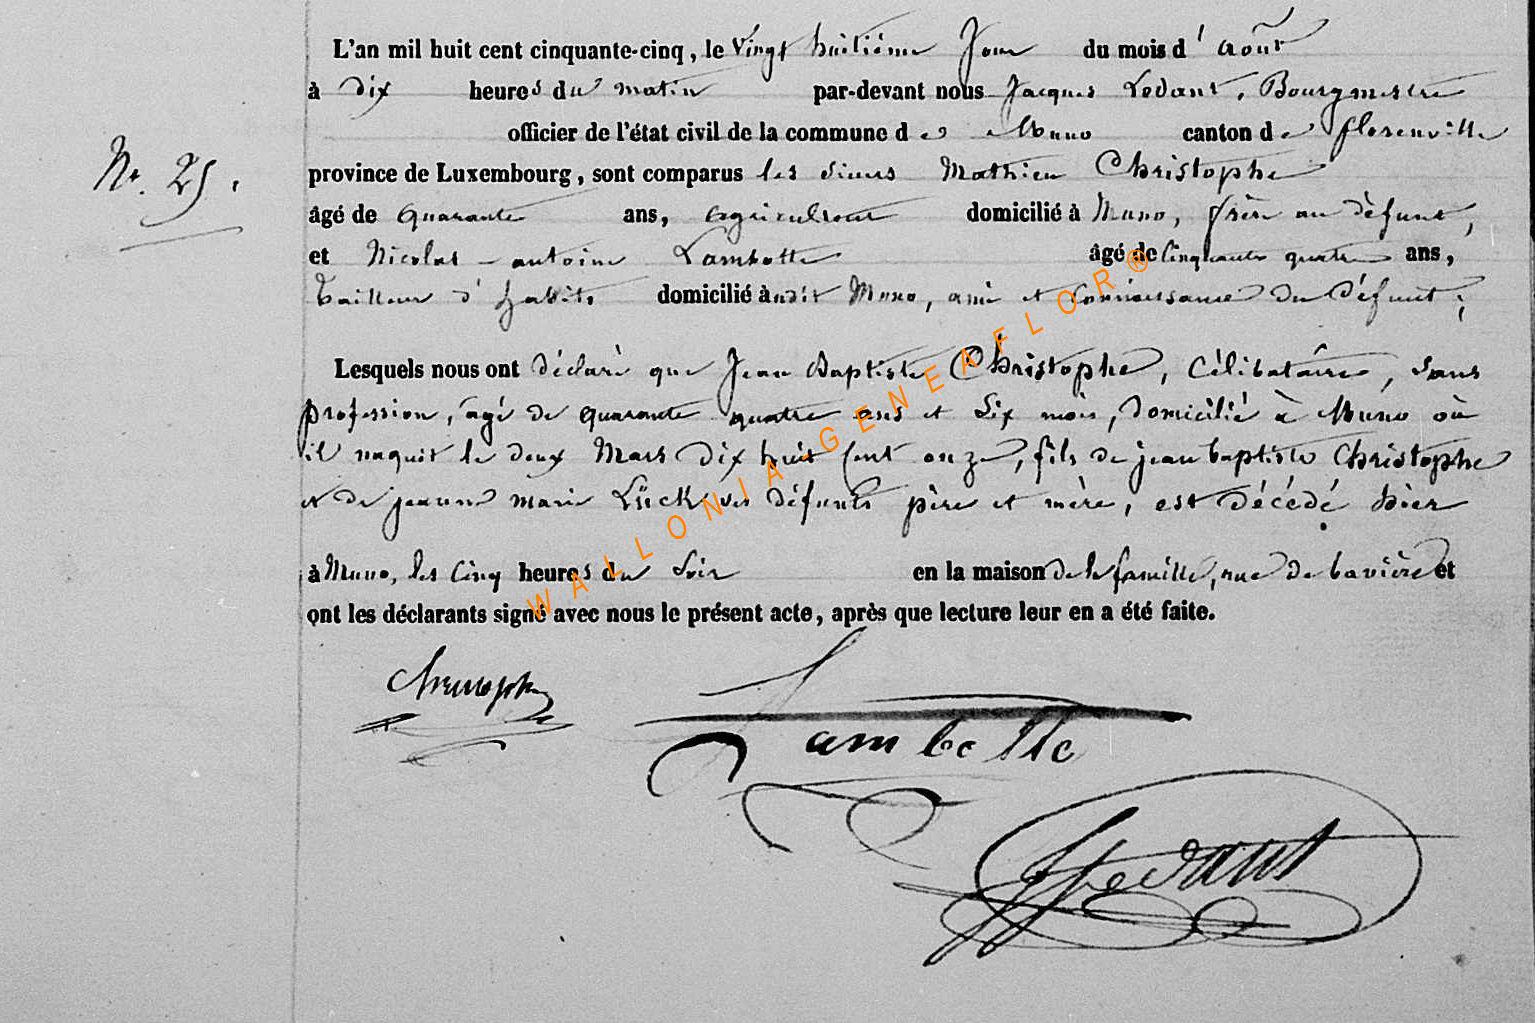 L'an mil huit cent cinquante-cinq, le Vingt huitième Jour du mois d'août
à Dix heures du matin par-devant nous Jacques Ledant, Bourgmestre
officier de l'état civil de la commune de Muno canton de florenville
N°. 25.
province de Luxembourg, sont comparus les sieurs Mathieu Christophe
âgé de quarante ans, agriculteur domicilié à Muno, frère au défunt,
et Nicolas-antoine Lambotte âgé de Cinquante quatre ans,
Tailleur d'habits domicilié àudit Muno, ami et connaissance du défunt;
Lesquels nous ont déclaré que Jean Baptiste Christophe, Célibataire, sans
profession, âgé de quarante quatre ans et Six mois, domicilié à Muno où
il naquit le deux Mars dix huit Cent onze, fils de jean baptiste Christophe
et de jeanne marie Lück ses défunts père et mère, est décédé hier
à Muno, les Cinq heures du Soir en la maison de la famille, rue de bavière et
ont les déclarants signé avec nous le présent acte, après que lecture leur en a été faite.
Christophe
Lambotte
JLedant
WALLONIA-GENEAFLOR®